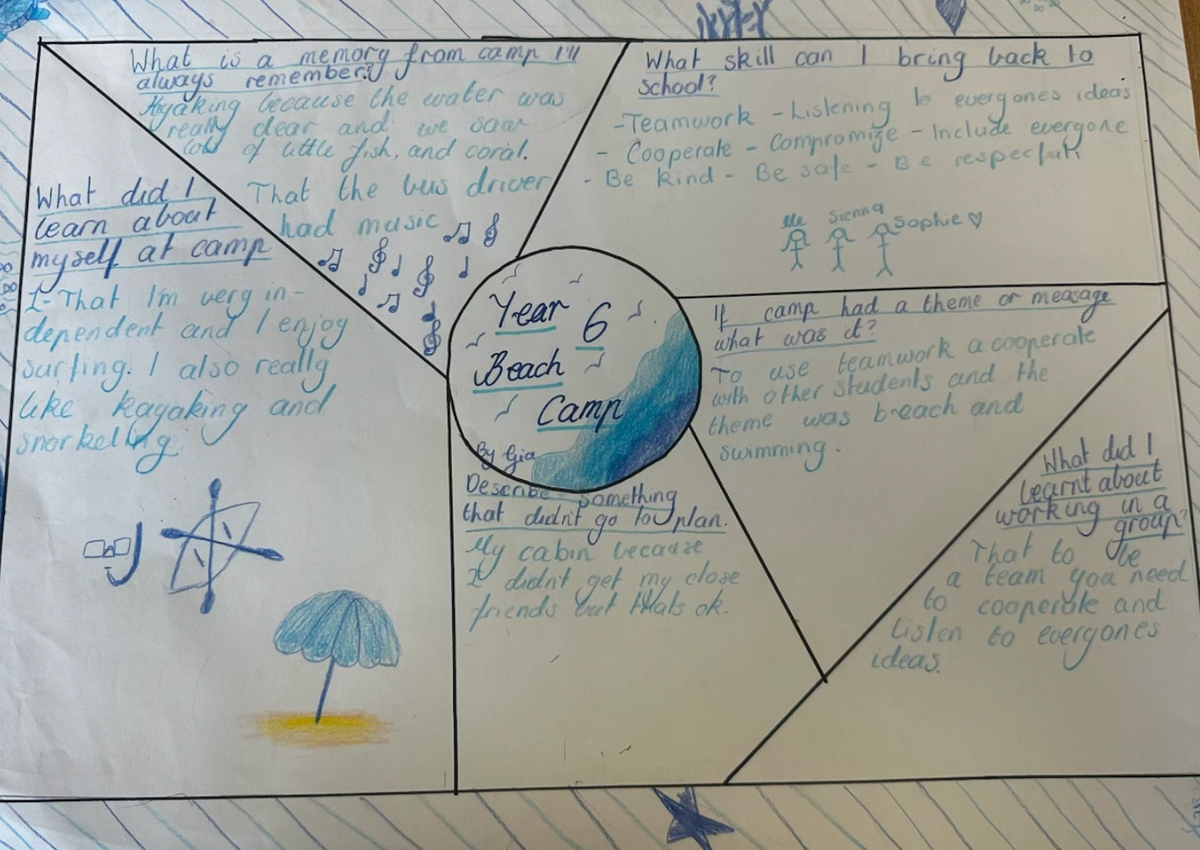 What is a memory from camp I'll
always remember?
Kayaking because the water was
really clear and we saw
lots of little fish, and coral.
That the bus driver
had music
What skill can I bring back to
school?
- Teamwork - Listening to everyones ideas
- Cooperate - Compromize - Include everyone
- Be kind - Be safe - Be respectful
Me Sienna Sophie ♡
What did I
learn about
myself at camp
I - That I'm very in-
dependent and I enjoy
surfing. I also really
like kayaking and
snorkelling.
Year 6
Beach
Camp
By Gia
If camp had a theme or message
what was it?
To use teamwork a cooperate
with other students and the
theme was breach and
swimming.
Describe something
that didn't go to plan.
My cabin because
I didn't get my close
friends but thats ok.
What did I
learnt about
working in a
group?
That to be
a team you need
to cooperate and
listen to everyones
ideas.